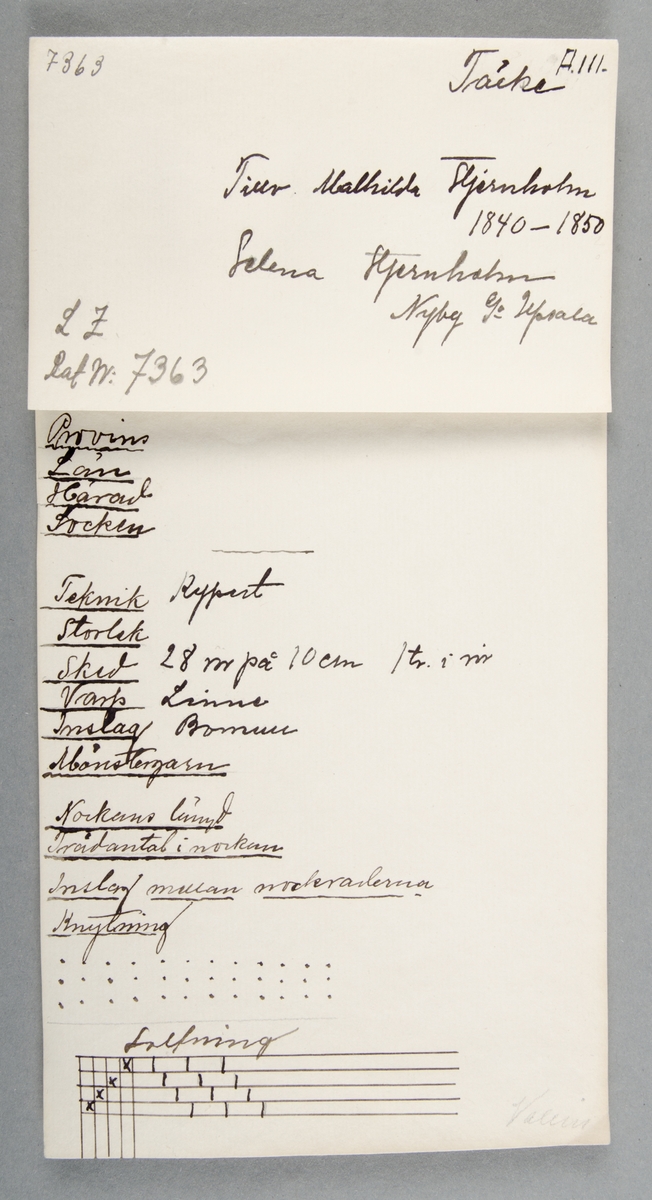 7363
A.III.
Täcke
Mathilda Stjernholm
1840–1850
Selena Stjernholm
Nyby Ga Upsala
L Z
Raf N: 7363
Provins
Län
Härad
Socken
Teknik Kypert
Storlek
Sked 28 rör på 10 cm 1 tr. i rör
Varp Linne
Inslag Bomull
Mönstergarn
Nockans längd
Trådantal i nockan
Inslag mellan nockraderna
Knytning
Solfning